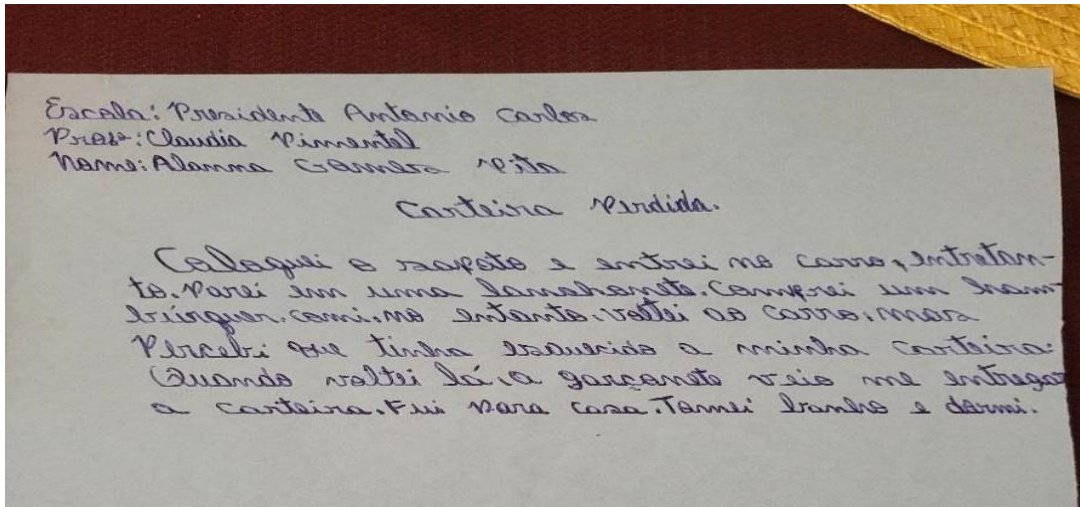 Escola: Presidente Antonio Carlos
Profª: Claudia Pimentel
Nome: Alanna Gomes Pita
Carteira Perdida.
Coloquei o sapato e entrei no carro, entretan-
to. Parei em uma lanchonete. Comprei um ham-
búrguer. comi. no entanto. voltei ao carro. mas
Percebi que tinha esquecido a minha carteira.
Quando voltei lá. a garçonete veio me entregar
a carteira. Fui para casa. Tomei banho e dormi.